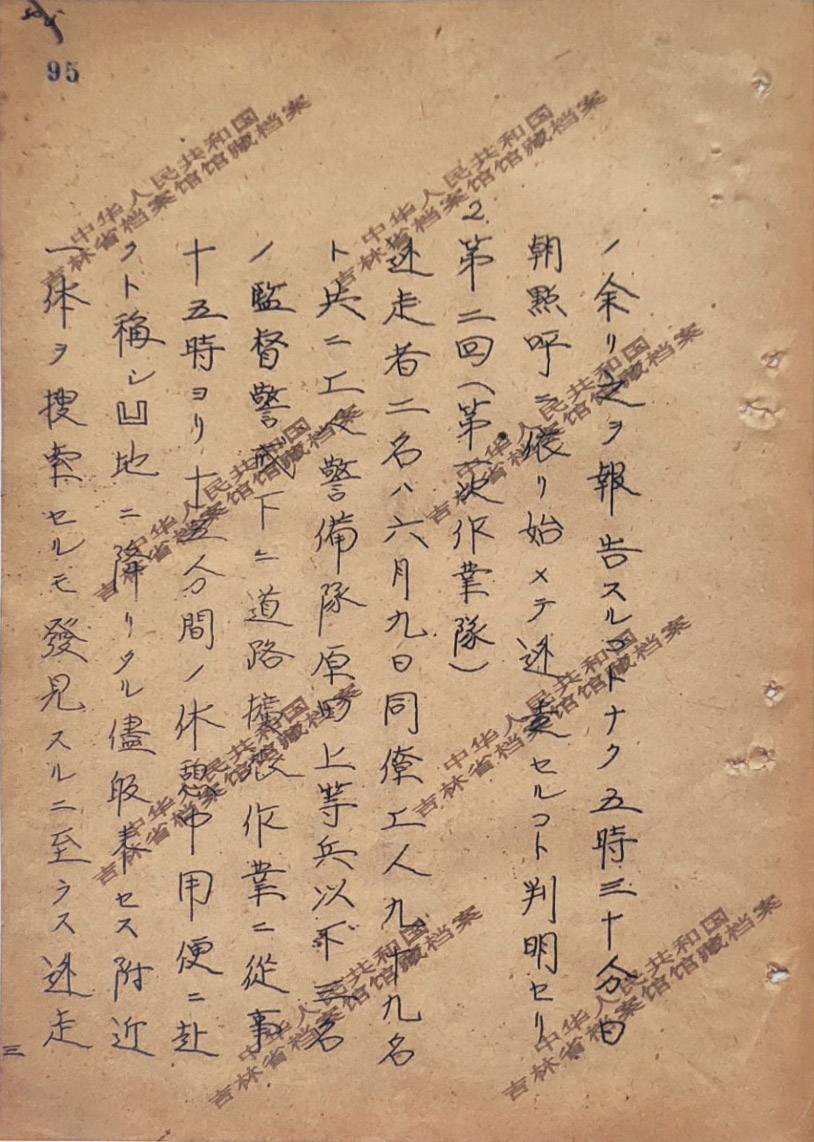 95
ノ余リ之ヲ報告スルコトナク五時三十分日
朝點呼ニ依リ始メテ逃走セルコト判明セリ
2.第二回(第一次作業隊)
逃走者二名ハ六月九日同僚工人九十九名
ト共ニ工人警備隊原町上等兵以下三名
ノ監督警戒下ニ道路擴張作業ニ從事
十五時ヨリ十五分間ノ休憩中用便ニ赴
クト稱シ凹地ニ降リタル儘皈来セス附近
一体ヲ搜索セルモ發見スルニ至ラス逃走
三
中华人民共和国
吉林省档案馆馆藏档案
中华人民共和国
吉林省档案馆馆藏档案
中华人民共和国
吉林省档案馆馆藏档案
中华人民共和国
吉林省档案馆馆藏档案
中华人民共和国
吉林省档案馆馆藏档案
中华人民共和国
吉林省档案馆馆藏档案
中华人民共和国
吉林省档案馆馆藏档案
中华人民共和国
吉林省档案馆馆藏档案